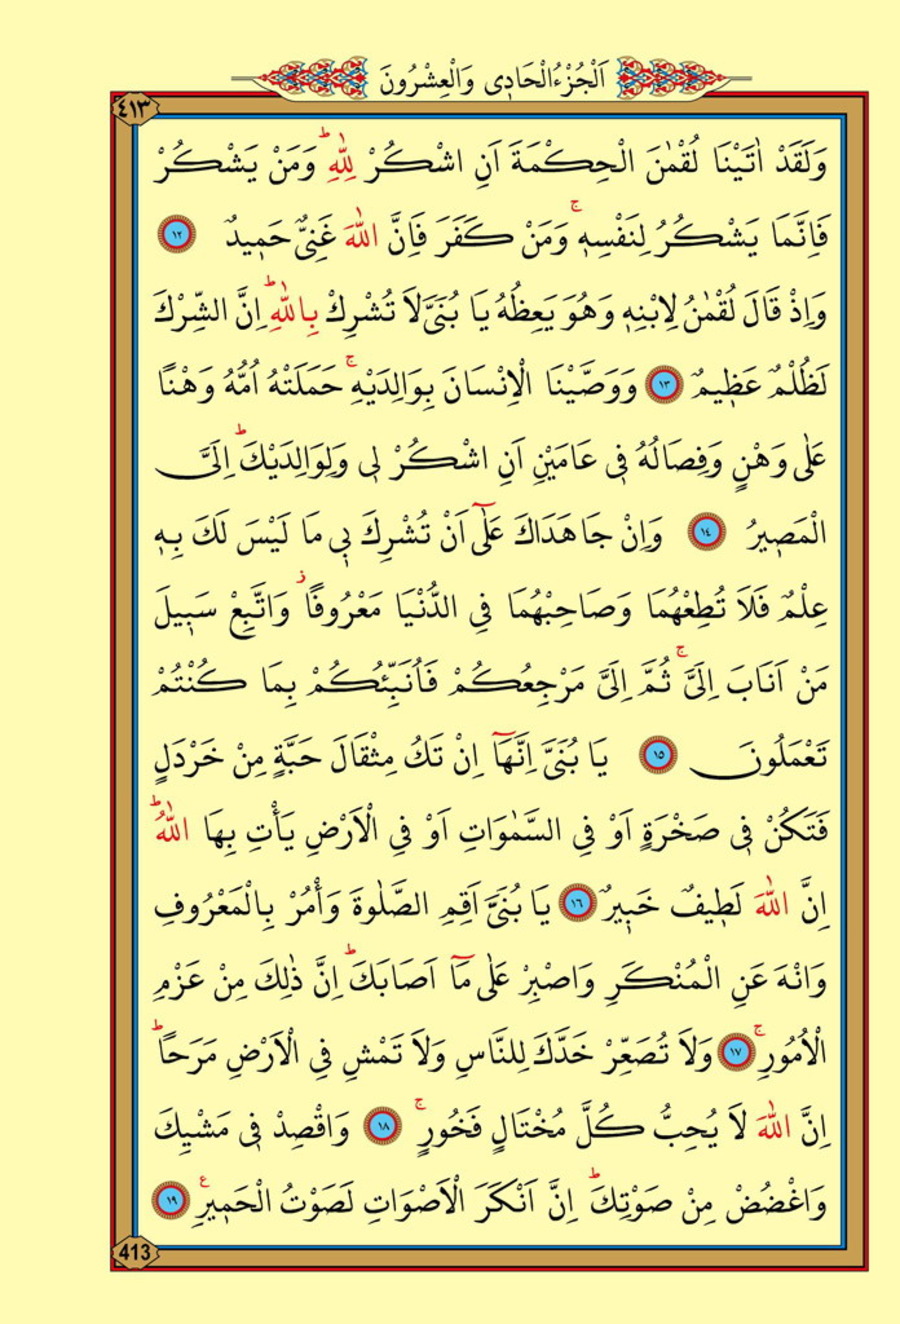 اَلْجُزْءُالْحَادِى وَالْعِشْرُونَ
٤١٣
وَلَقَدْ اٰتَيْنَا لُقْمٰنَ الْحِكْمَةَ اَنِ اشْكُرْ لِلّٰهِۜ وَمَنْ يَشْكُرْ
فَاِنَّمَا يَشْكُرُ لِنَفْسِه۪ۚ وَمَنْ كَفَرَ فَاِنَّ اللّٰهَ غَنِىٌّ حَم۪يدٌ ١٢
وَاِذْ قَالَ لُقْمٰنُ لِابْنِه۪ وَهُوَ يَعِظُهُ يَا بُنَىَّ لَا تُشْرِكْ بِاللّٰهِۜ اِنَّ الشِّرْكَ
لَظُلْمٌ عَظ۪يمٌ ١٣ وَوَصَّيْنَا الْاِنْسَانَ بِوَالِدَيْهِۚ حَمَلَتْهُ اُمُّهُ وَهْنًا
عَلٰى وَهْنٍ وَفِصَالُهُ ف۪ى عَامَيْنِ اَنِ اشْكُرْ ل۪ى وَلِوَالِدَيْكَۜ اِلَىَّ
الْمَص۪يرُ ١٤ وَاِنْ جَاهَدَاكَ عَلٰٓى اَنْ تُشْرِكَ ب۪ى مَا لَيْسَ لَكَ بِه۪
عِلْمٌ فَلَا تُطِعْهُمَا وَصَاحِبْهُمَا فِى الدُّنْيَا مَعْرُوفًاۘ وَاتَّبِعْ سَب۪يلَ
مَنْ اَنَابَ اِلَىَّۚ ثُمَّ اِلَىَّ مَرْجِعُكُمْ فَاُنَبِّئُكُمْ بِمَا كُنْتُمْ
تَعْمَلُونَ ١٥ يَا بُنَىَّ اِنَّهَٓا اِنْ تَكُ مِثْقَالَ حَبَّةٍ مِنْ خَرْدَلٍ
فَتَكُنْ ف۪ى صَخْرَةٍ اَوْ فِى السَّمٰوَاتِ اَوْ فِى الْاَرْضِ يَأْتِ بِهَا اللّٰهُۜ
اِنَّ اللّٰهَ لَط۪يفٌ خَب۪يرٌ ١٦ يَا بُنَىَّ اَقِمِ الصَّلٰوةَ وَأْمُرْ بِالْمَعْرُوفِ
وَانْهَ عَنِ الْمُنْكَرِ وَاصْبِرْ عَلٰى مَٓا اَصَابَكَۜ اِنَّ ذٰلِكَ مِنْ عَزْمِ
الْاُمُورِۚ ١٧ وَلَا تُصَعِّرْ خَدَّكَ لِلنَّاسِ وَلَا تَمْشِ فِى الْاَرْضِ مَرَحًاۜ
اِنَّ اللّٰهَ لَا يُحِبُّ كُلَّ مُخْتَالٍ فَخُورٍۚ ١٨ وَاقْصِدْ ف۪ى مَشْيِكَ
وَاغْضُضْ مِنْ صَوْتِكَۜ اِنَّ اَنْكَرَ الْاَصْوَاتِ لَصَوْتُ الْحَم۪يرِ ع ١٩
413